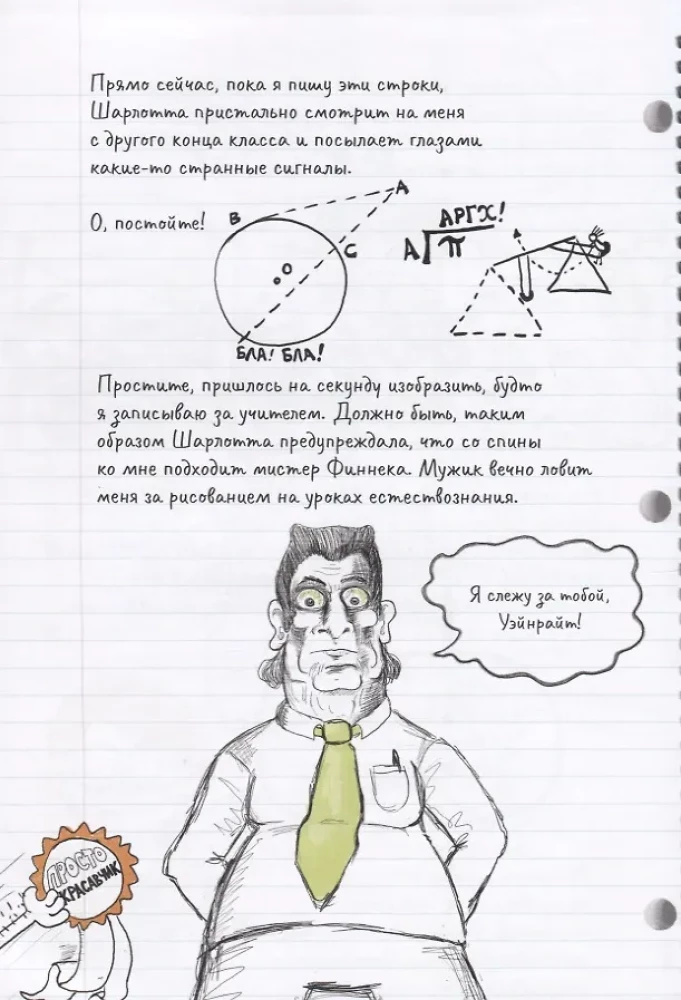 Прямо сейчас, пока я пишу эти строки,
Шарлотта пристально смотрит на меня
с другого конца класса и посылает глазами
какие-то странные сигналы.
О, постойте!
A
B
C
O
БЛА! БЛА!
АРГХ!
A√π
Простите, пришлось на секунду изобразить, будто
я записываю за учителем. Должно быть, таким
образом Шарлотта предупреждала, что со спины
ко мне подходит мистер Финнека. Мужик вечно ловит
меня за рисованием на уроках естествознания.
Я слежу за тобой,
Уэйнрайт!
ПРОСТО
КРАСАВЧИК